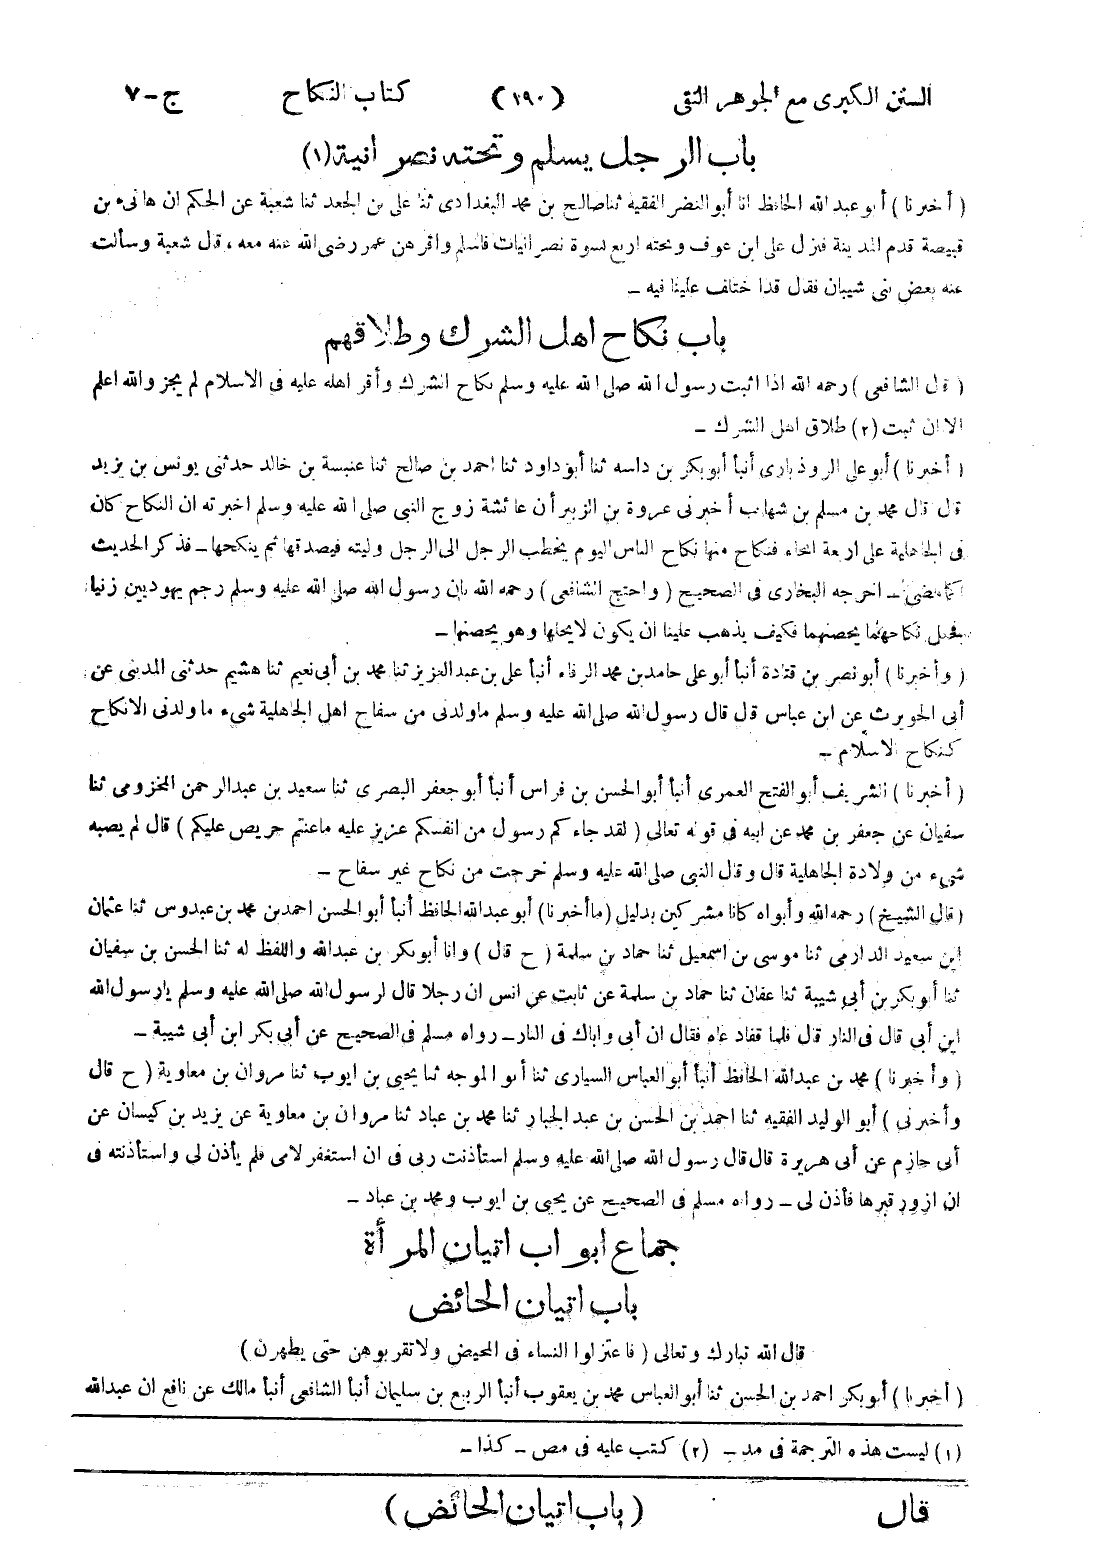 السنن الكبرى مع الجوهر النقى (١٩٠) كتاب النكاح ج-٧
باب الرجل يسلم وتحته نصرانية (١)
( أخبرنا ) أبو عبد الله الحافظ انا أبو النضر الفقيه ثنا صالح بن محمد البغدادى ثنا على بن الجعد ثنا شعبة عن الحكم ان هانىء بن
قبيصة قدم المدينة فنزل على ابن عوف وتحته اربع نسوة نصرانيات فاسلم واقرهن عمر رضى الله عنه معه ، قال شعبة وسألت
عنه بعض بنى شيبان فقال قد اختلف علينا فيه -
باب نكاح اهل الشرك وطلاقهم
( قال الشافعى ) رحمه الله اذا اثبت رسول الله صلى الله عليه وسلم نكاح الشرك وأقر اهله عليه فى الاسلام لم يجز والله اعلم
الا ان ثبت (٢) طلاق اهل الشرك -
( أخبرنا ) أبو على الروذبارى أنبأ أبو بكر بن داسه ثنا أبو داود ثنا احمد بن صالح ثنا عنبسة بن خالد حدثنى يونس بن يزيد
قال قال محمد بن مسلم بن شهاب أخبرنى عروة بن الزبير أن عائشة زوج النبى صلى الله عليه وسلم اخبرته ان النكاح كان
فى الجاهلية على اربعة انحاء فنكاح منها نكاح الناس اليوم يخطب الرجل الى الرجل وليته فيصدقها ثم ينكحها - فذكر الحديث
كما مضى - اخرجه البخارى فى الصحيح ( واحتج الشافعى ) رحمه الله بان رسول الله صلى الله عليه وسلم رجم يهوديين زنيا
فجعل نكاحهما يحصنهما فكيف يذهب علينا ان يكون لا يحلها وهو يحصنها -
( وأخبرنا ) أبو نصر بن قتادة أنبأ أبو على حامد بن محمد الرفاء أنبأ على بن عبد العزيز ثنا محمد بن أبى نعيم ثنا هشيم حدثنى المدينى عن
أبى الحويرث عن ابن عباس قال قال رسول الله صلى الله عليه وسلم ما ولدنى من سفاح اهل الجاهلية شىء ما ولدنى الا نكاح
كنكاح الاسلام -
( أخبرنا ) الشريف أبو الفتح العمرى أنبأ أبو الحسن بن فراس أنبأ أبو جعفر البصرى ثنا سعيد بن عبد الرحمن المخزومى ثنا
سفيان عن جعفر بن محمد عن ابيه فى قوله تعالى ( لقد جاءكم رسول من انفسكم عزيز عليه ما عنتم حريص عليكم ) قال لم يصبه
شىء من ولادة الجاهلية قال وقال النبى صلى الله عليه وسلم خرجت من نكاح غير سفاح -
( قال الشيخ ) رحمه الله وأبواه كانا مشركين بدليل ( ما أخبرنا ) أبو عبد الله الحافظ أنبأ أبو الحسن احمد بن محمد بن عبدوس ثنا عثمان
ابن سعيد الدارمى ثنا موسى بن اسمعيل ثنا حماد بن سلمة ( ح قال ) وانا أبو بكر بن عبد الله واللفظ له ثنا الحسن بن سفيان
ثنا أبو بكر بن أبى شيبة ثنا عفان ثنا حماد بن سلمة عن ثابت عن انس ان رجلا قال لرسول الله صلى الله عليه وسلم يا رسول الله
اين أبى قال فى النار قال فلما قفا دعاه فقال ان أبى واباك فى النار - رواه مسلم فى الصحيح عن أبى بكر ابن أبى شيبة -
( وأخبرنا ) محمد بن عبد الله الحافظ أنبأ أبو العباس السيارى ثنا أبو الموجه ثنا يحيى بن ايوب ثنا مروان بن معاوية ( ح قال
وأخبرنى ) أبو الوليد الفقيه ثنا احمد بن الحسن بن عبد الجبار ثنا محمد بن عباد ثنا مروان بن معاوية عن يزيد بن كيسان عن
أبى حازم عن أبى هريرة قال قال رسول الله صلى الله عليه وسلم استأذنت ربى فى ان استغفر لامى فلم يأذن لى واستأذنته فى
ان ازور قبرها فأذن لى - رواه مسلم فى الصحيح عن يحيى بن ايوب ومحمد بن عباد -
جماع ابواب اتيان المرأة
باب اتيان الحائض
قال الله تبارك وتعالى ( فاعتزلوا النساء فى المحيض ولا تقربوهن حتى يطهرن )
( أخبرنا ) أبو بكر احمد بن الحسن ثنا أبو العباس محمد بن يعقوب أنبأ الربيع بن سليمان أنبأ الشافعى أنبأ مالك عن نافع ان عبد الله
(١) ليست هذه الترجمة فى مد - (٢) كتب عليه فى مص - كذا -
قال ( باب اتيان الحائض )